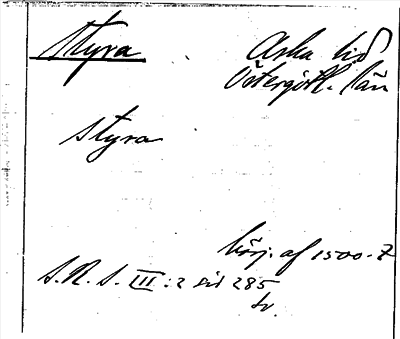 Styra
Aska hd
Östergötl. län
Styra
börj. af 1500-t
S.R.S. III:2 sid 285
tr.